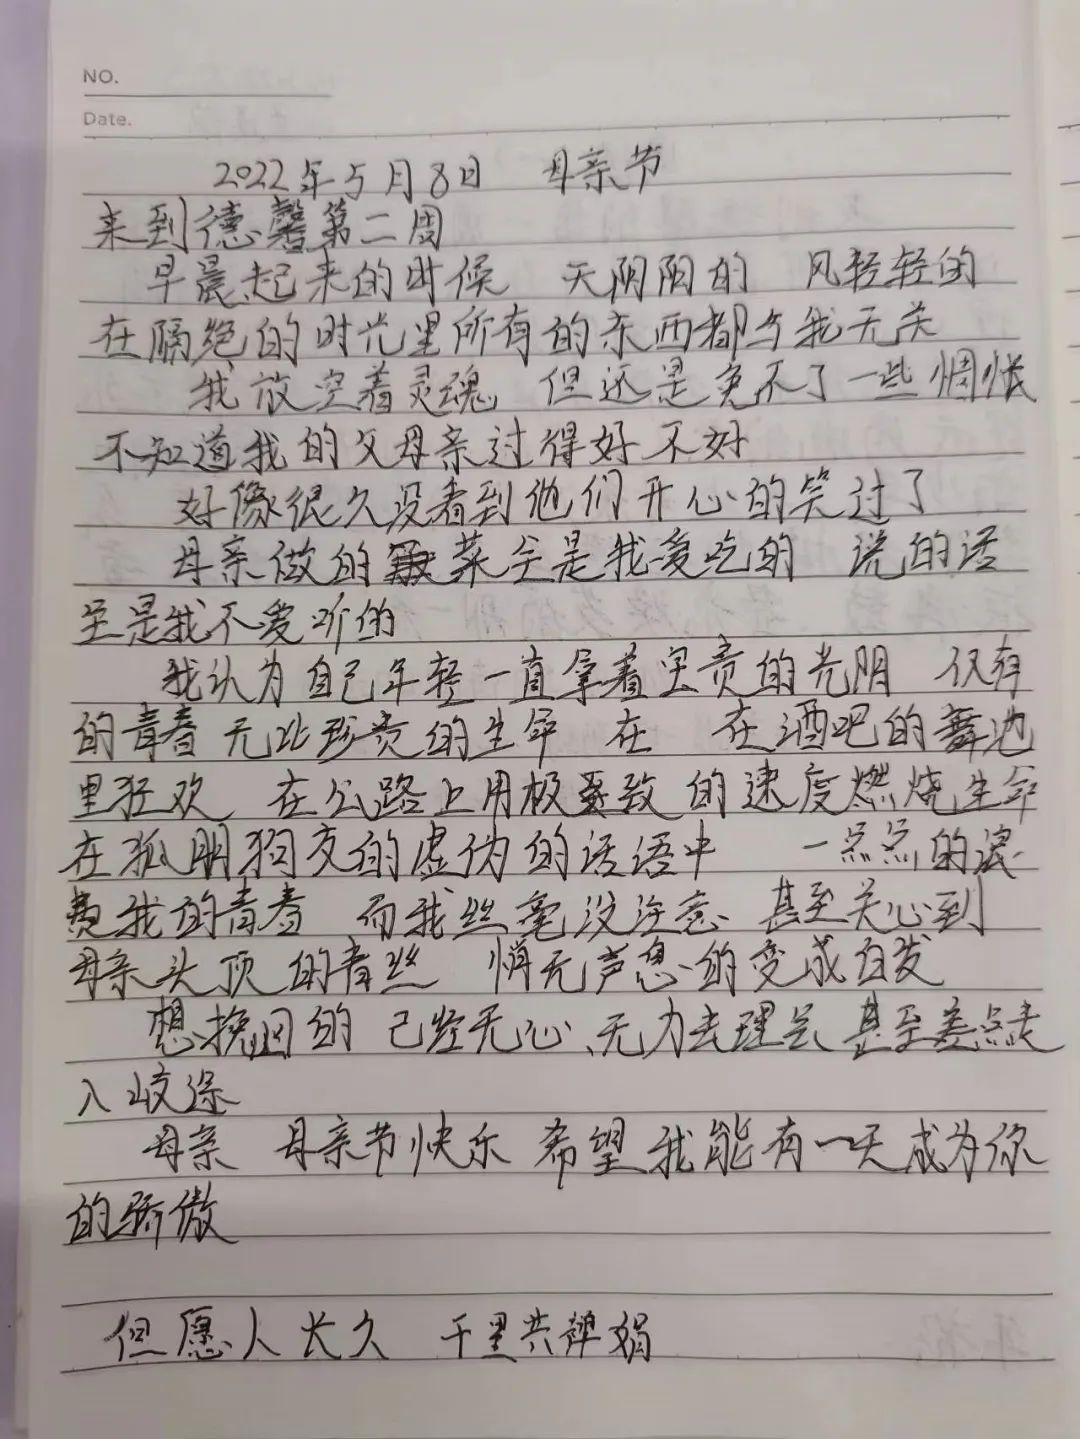 NO.
Date.
2022年5月8日 母亲节
来到德馨第二周
早晨起来的时候 天阴阴的 风轻轻的
在隔绝的时光里所有的东西都与我无关
我放空着灵魂 但还是免不了一些惆怅
不知道我的父母亲过得好不好
好像很久没看到他们开心的笑过了
母亲做的菜全是我爱吃的 说的话
全是我不爱听的
我认为自己年轻一直拿着宝贵的光阴 仅有
的青春 无比珍贵的生命 在 在酒吧的舞池
里狂欢 在公路上用极致的速度燃烧生命
在狐朋狗友的虚伪的话语中 一点点的浪
费我的青春 而我丝毫没注意 甚至关心到
母亲头顶的青丝 悄无声息的变成白发
想挽回的 已经无心、无力去理会 甚至差点走
入歧途
母亲 母亲节快乐 希望我能有一天成为你
的骄傲
但愿人长久 千里共婵娟